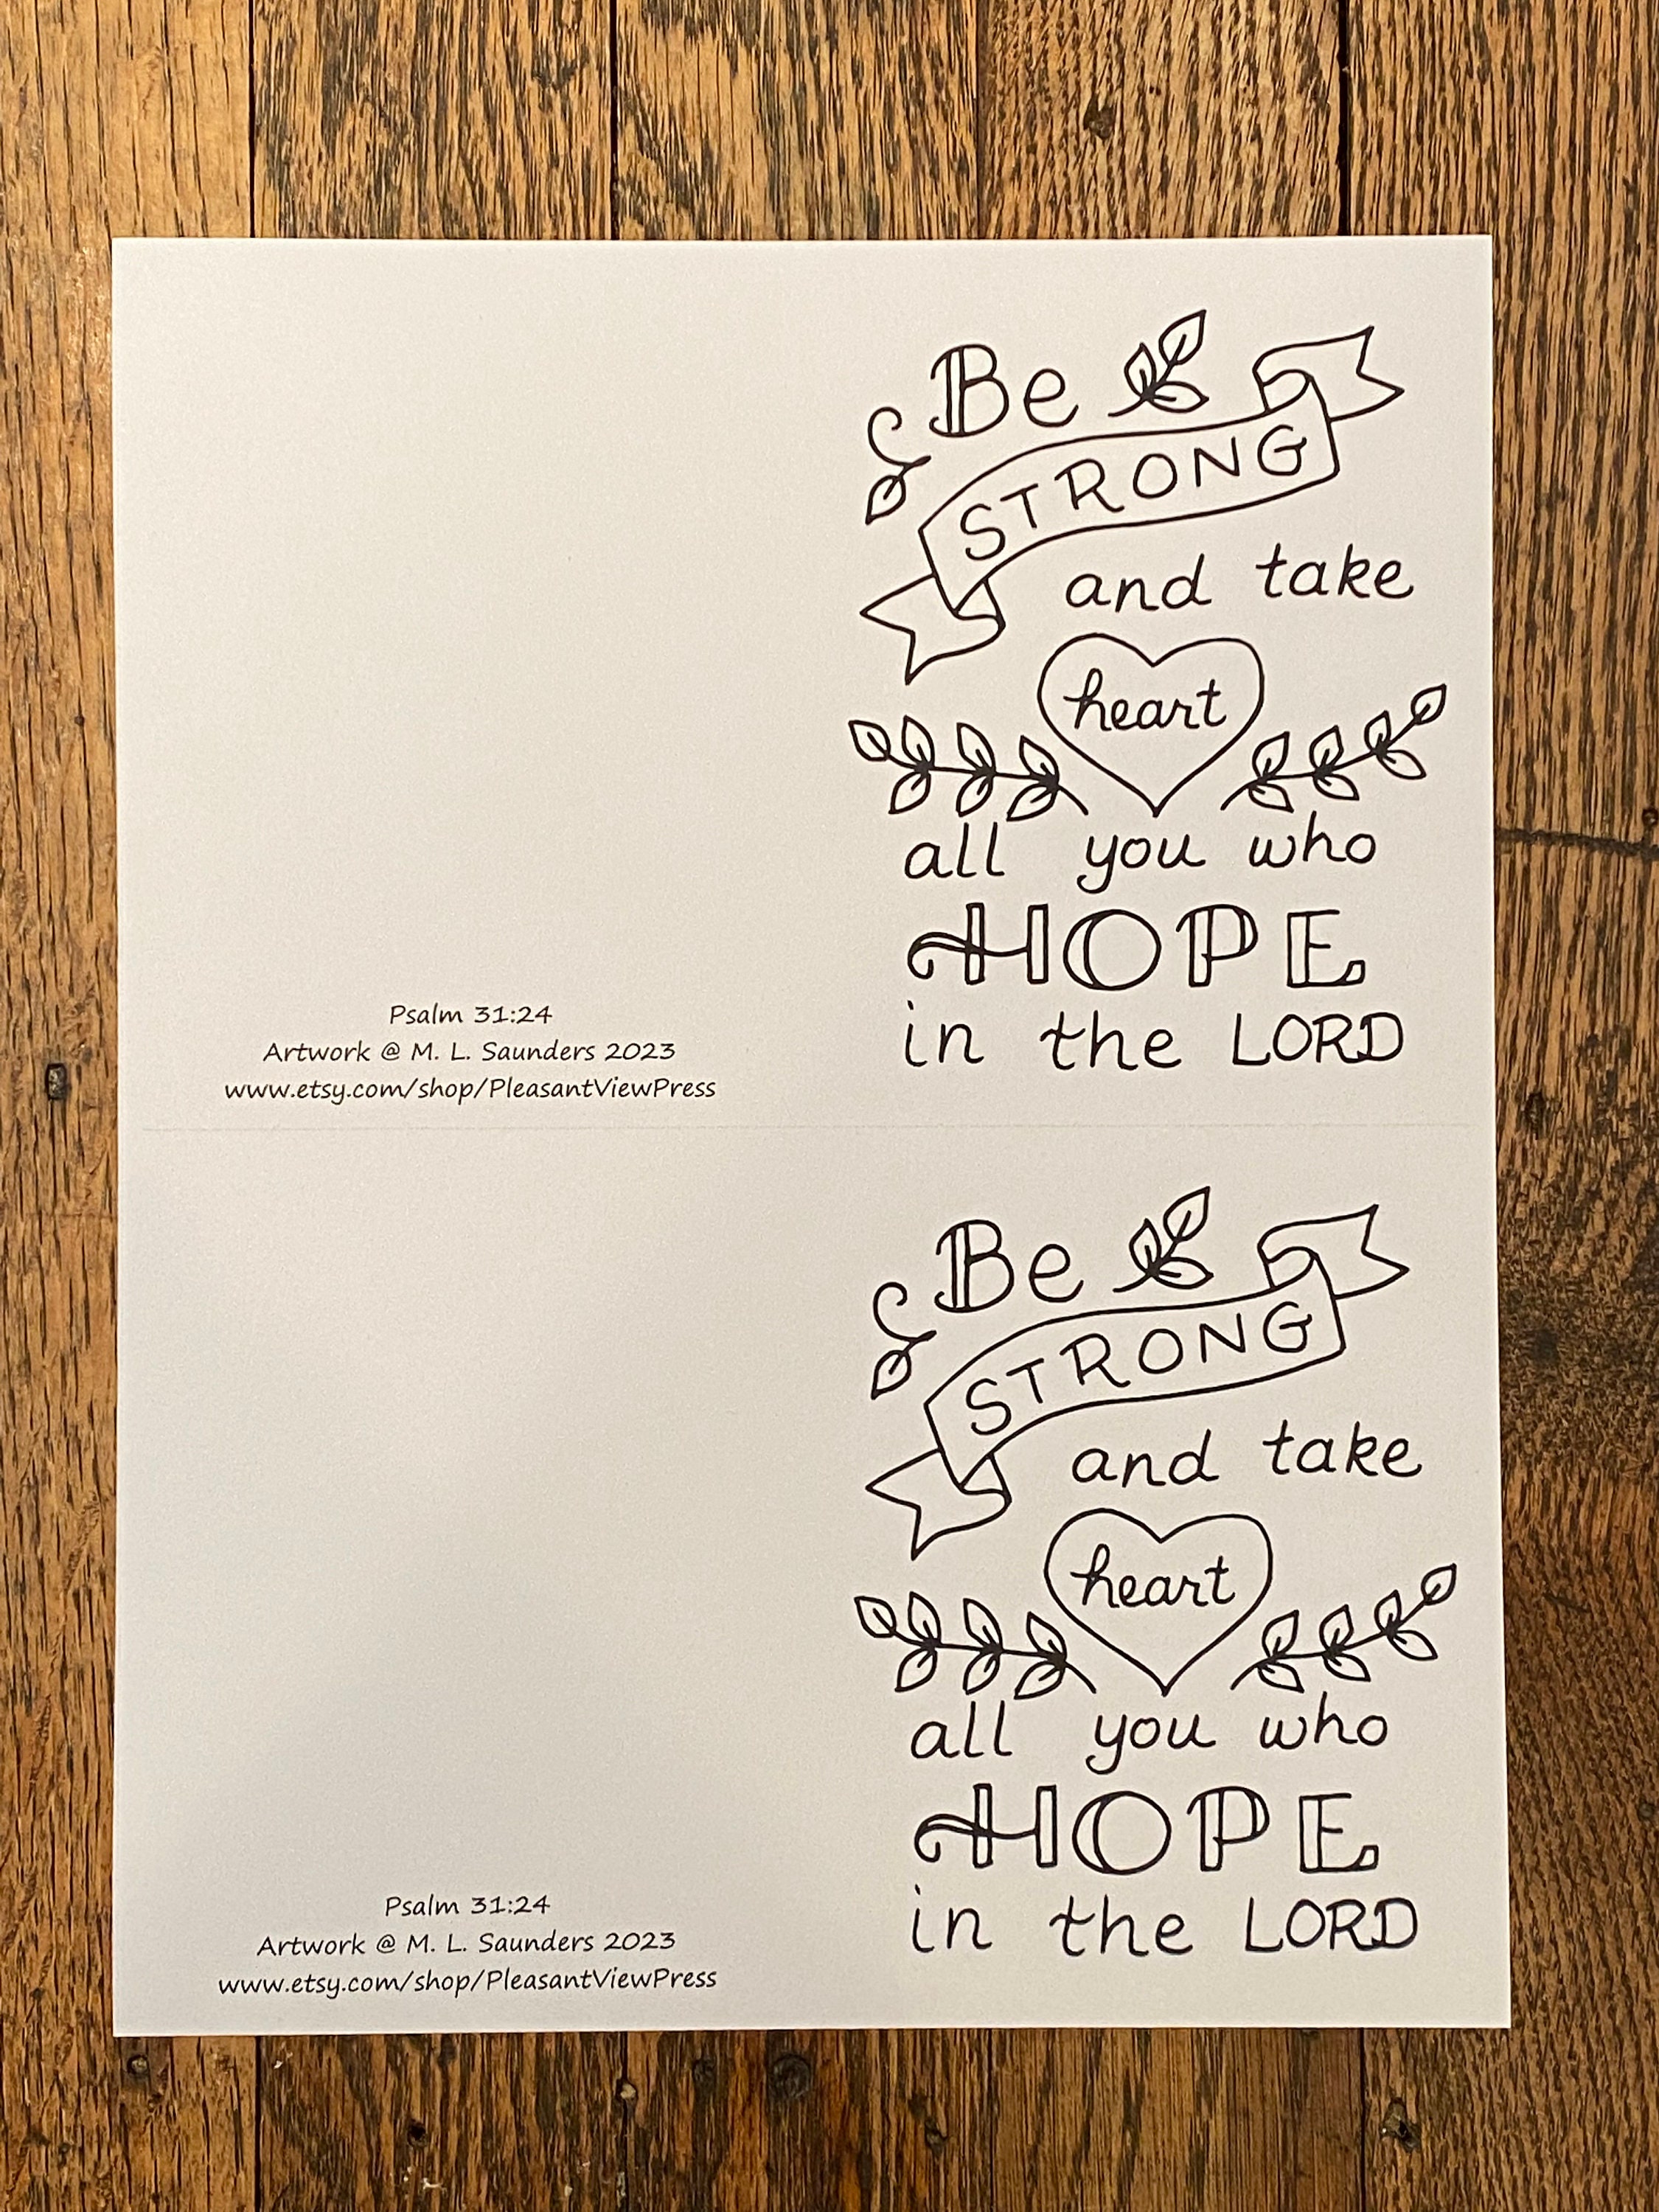 Be
STRONG
and take
heart
all you who
HOPE
in the LORD
Psalm 31:24
Artwork @ M. L. Saunders 2023
www.etsy.com/shop/PleasantViewPress
Be
STRONG
and take
heart
all you who
HOPE
in the LORD
Psalm 31:24
Artwork @ M. L. Saunders 2023
www.etsy.com/shop/PleasantViewPress